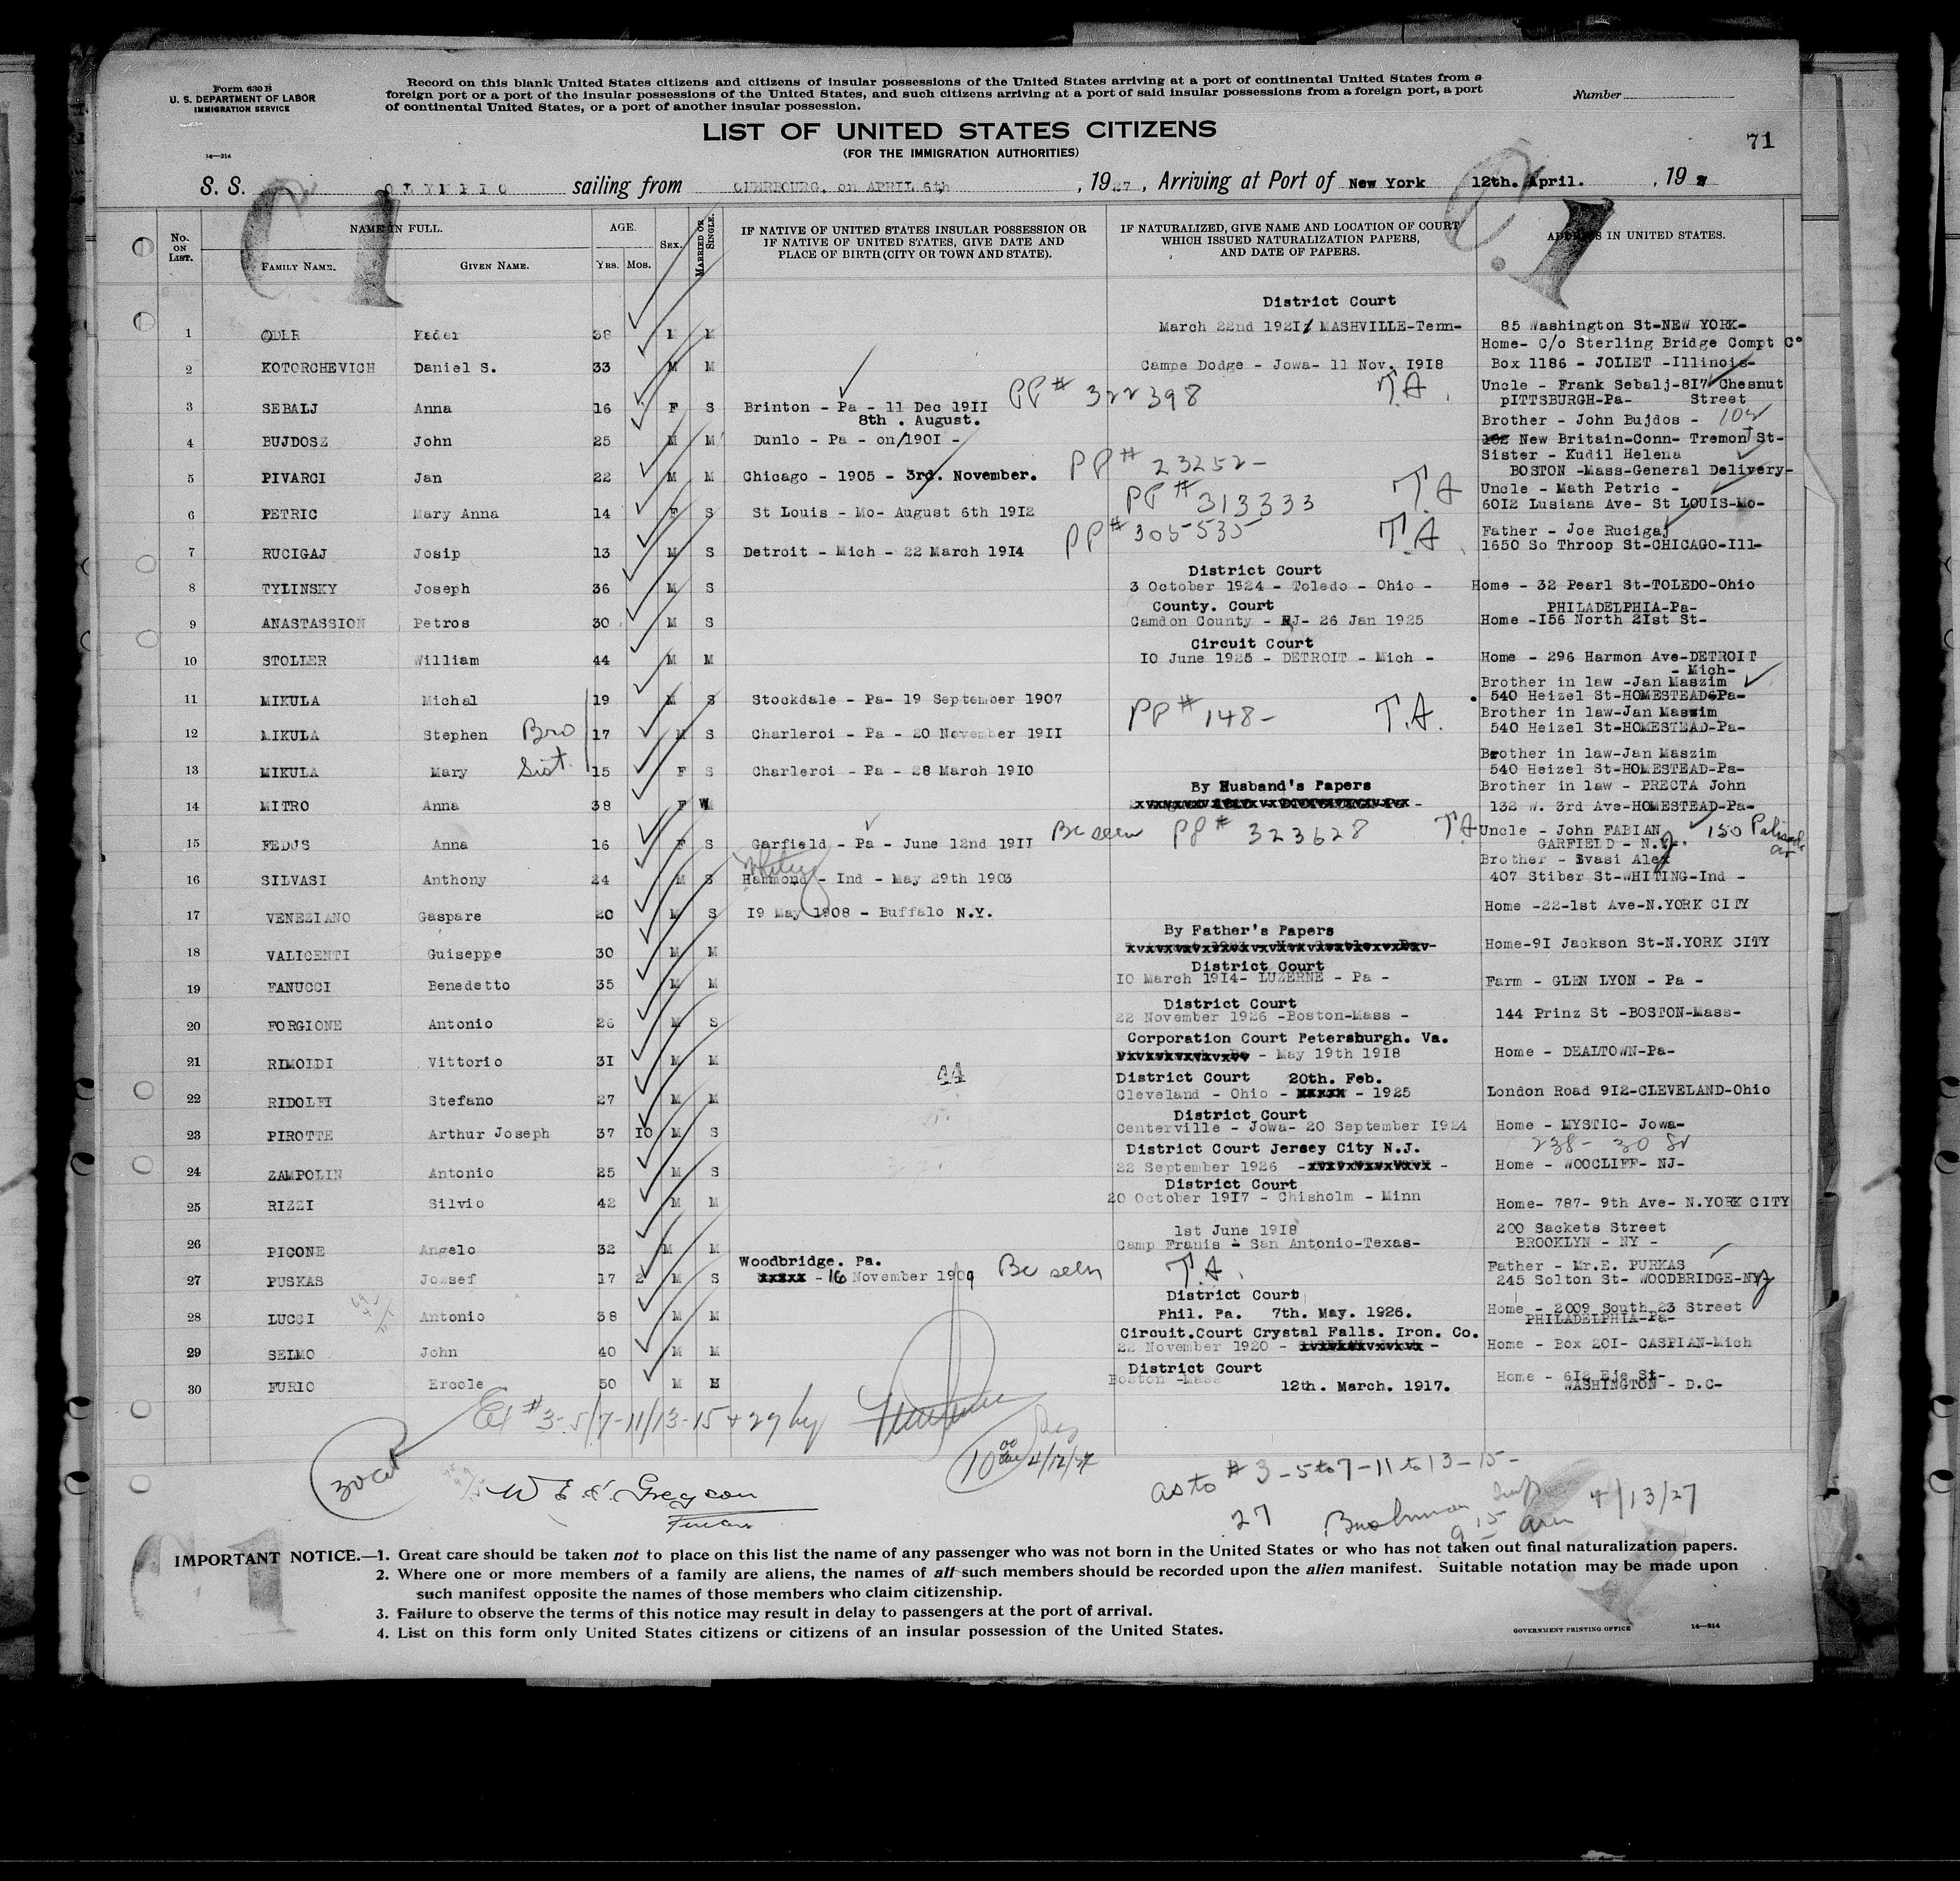 Form 630 B
U. S. DEPARTMENT OF LABOR
IMMIGRATION SERVICE
Record on this blank United States citizens and citizens of insular possessions of the United States arriving at a port of continental United States from a
foreign port or a port of the insular possessions of the United States, and such citizens arriving at a port of said insular possessions from a foreign port, a port
of continental United States, or a port of another insular possession.
Number
LIST OF UNITED STATES CITIZENS
(FOR THE IMMIGRATION AUTHORITIES)
71
14—214
S. S. OLYMPIC sailing from CHERBOURG, on APRIL 6th, 1927, Arriving at Port of New York 12th. April. , 19
No. ON LIST.
NAME IN FULL.
FAMILY NAME. GIVEN NAME.
AGE. YRS. MOS.
SEX.
MARRIED OR SINGLE.
IF NATIVE OF UNITED STATES INSULAR POSSESSION OR
IF NATIVE OF UNITED STATES, GIVE DATE AND
PLACE OF BIRTH (CITY OR TOWN AND STATE).
IF NATURALIZED, GIVE NAME AND LOCATION OF COURT
WHICH ISSUED NATURALIZATION PAPERS,
AND DATE OF PAPERS.
ADDRESS IN UNITED STATES.
District Court
1 ODLR Kader 38 M M March 22nd 1921 MASHVILLE-Tenn- 85 Washington St-NEW YORK-
Home- C/o Sterling Bridge Compt Co
2 KOTORCHEVICH Daniel S. 33 M M Campe Dodge - Jowa- 11 Nov. 1918 Box 1186 - JOLIET -Illinois-
PP# 322398 T.A. Uncle - Frank Sebalj-817 Chesnut
3 SEBALJ Anna 16 F S Brinton - Pa - 11 Dec 1911 pITTSBURGH-Pa- Street
8th . August. Brother - John Bujdos - 102
4 BUJDOSZ John 25 M M Dunlo - Pa - on/1901 - New Britain-Conn- Tremont St-
Sister - Kudil Helena
5 PIVARCI Jan 22 M M Chicago - 1905 - 3rd. November. PP# 23252- BOSTON -Mass-General Delivery-
PP# 313333 T A Uncle - Math Petric -
6 PETRIC Mary Anna 14 F S St Louis - Mo- August 6th 1912 6012 Lusiana Ave- St LOUIS-Mo-
PP# 305535 T.A. Father - Joe Rucigaj
7 RUCIGAJ Josip 13 M S Detroit - Mich - 22 March 1914 1650 So Throop St-CHICAGO-Ill-
District Court
8 TYLINSKY Joseph 36 M S 3 October 1924 - Toledo - Ohio - Home - 32 Pearl St-TOLEDO-Ohio
County. Court PHILADELPHIA-Pa-
9 ANASTASSION Petros 30 M S Camdon County - NJ- 26 Jan 1925 Home -156 North 21st St-
Circuit Court
10 STOLLER William 44 M M 10 June 1925 - DETROIT - Mich - Home - 296 Harmon Ave-DETROIT
- Mich-
Brother in law -Jan Maszim
11 MIKULA Michal 19 M S Stockdale - Pa- 19 September 1907 540 Heizel St-HOMESTEAD-Pa-
PP# 148- T.A. Brother in law-Jan Maszim
12 MIKULA Stephen Bro 17 M S Charleroi - Pa - 20 November 1911 540 Heizel St-HOMESTEAD-Pa-
Brother in law-Jan Maszim
13 MIKULA Mary Sist. 15 F S Charleroi - Pa - 28 March 1910 540 Heizel St-HOMESTEAD-Pa-
By Husband's Papers Brother in law - PRECTA John
14 MITRO Anna 38 F W 132 W. 3rd Ave-HOMESTEAD-Pa-
Be seen PP# 323628 T A Uncle - John FABIAN 150 Palisade
15 FEDUS Anna 16 F S Garfield - Pa - June 12nd 1911 GARFIELD - N.J.
Whiting Brother - Svasi Alex
16 SILVASI Anthony 24 M S Hammond - Ind - May 29th 1903 407 Stiber St-WHITING-Ind -
17 VENEZIANO Gaspare 20 M S 19 May 1908 - Buffalo N.Y. Home -22-1st Ave-N.YORK CITY
By Father's Papers
18 VALICENTI Guiseppe 30 M M Home-91 Jackson St-N.YORK CITY
District Court
19 FANUCCI Benedetto 35 M M 10 March 1914- LUZERNE - Pa - Farm - GLEN LYON - Pa -
District Court
20 FORGIONE Antonio 26 M S 22 November 1926 -Boston-Mass - 144 Prinz St -BOSTON-Mass-
Corporation Court Petersburgh. Va.
21 RIMOIDI Vittorio 31 M M - May 19th 1918 Home - DEALTOWN-Pa-
44
District Court 20th. Feb.
22 RIDOLFI Stefano 27 M M Cleveland - Ohio - xxxxx - 1925 London Road 912-CLEVELAND-Ohio
District Court
23 PIROTTE Arthur Joseph 37 10 M S Centerville - Jowa- 20 September 1924 Home - MYSTIC- Jowa-
District Court Jersey City N.J. 238- 30 St
24 ZAMPOLIN Antonio 25 M S 22 September 1926 - Home - WOOCLIFF- NJ-
District Court
25 RIZZI Silvio 42 M M 20 October 1917 - Chisholm - Minn Home- 787- 9th Ave- N.YORK CITY
1st June 1918 200 Sackets Street
26 PICONE Angelo 32 M M Camp Franis - San Antonio-Texas- BROOKLYN - NY -
Woodbridge. Pa. Be seen T.A. Father - Mr.E. PURKAS
27 PUSKAS Jozsef 17 2 M S xxxxx - 16 November 1909 245 Solton St- WOODBRIDGE-NJ
District Court
28 LUCCI Antonio 38 M M Phil. Pa. 7th. May. 1926. Home - 2009 South 23 Street
PHILADELPHIA-Pa-
Circuit.Court Crystal Falls. Iron. Co.
29 SELMO John 40 M M 22 November 1920 - Home - Box 201- CASPIAN-Mich
District Court
30 FURIO Ercole 50 M M Boston -Mass 12th. March. 1917. Home - 612 Eje St-
WASHINGTON - D.C-
#3-5/7-11/13-15+27 by
10 00 4/12/27
30 cit
as to #3-5 to 7-11 to 13-15-
27 4/13/27
9 15 am
IMPORTANT NOTICE.—1. Great care should be taken not to place on this list the name of any passenger who was not born in the United States or who has not taken out final naturalization papers.
2. Where one or more members of a family are aliens, the names of all such members should be recorded upon the alien manifest. Suitable notation may be made upon
such manifest opposite the names of those members who claim citizenship.
3. Failure to observe the terms of this notice may result in delay to passengers at the port of arrival.
4. List on this form only United States citizens or citizens of an insular possession of the United States.
GOVERNMENT PRINTING OFFICE 14—214